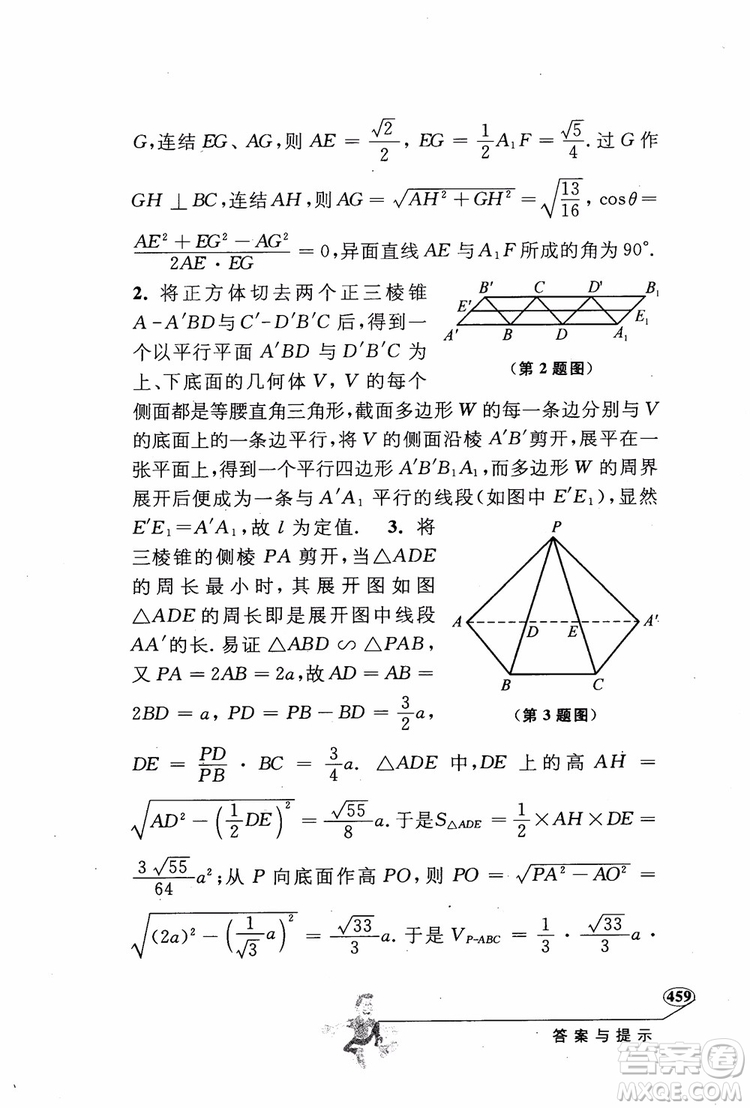 G,连结 EG、AG,则 AE = √2/2, EG = 1/2 A₁F = √5/4. 过 G 作
GH ⊥ BC,连结 AH,则 AG = √(AH² + GH²) = √(13/16), cosθ =
(AE² + EG² − AG²)/(2AE · EG) = 0,异面直线 AE 与 A₁F 所成的角为 90°.
2. 将正方体切去两个正三棱锥
A-A′BD 与 C′-D′B′C 后,得到一
个以平行平面 A′BD 与 D′B′C 为
上、下底面的几何体 V, V 的每个
B′ C D′ B₁
E′ E₁
A′ B D A₁
(第 2 题图)
侧面都是等腰直角三角形,截面多边形 W 的每一条边分别与 V
的底面上的一条边平行,将 V 的侧面沿棱 A′B′剪开,展平在一
张平面上,得到一个平行四边形 A′B′B₁A₁,而多边形 W 的周界
展开后便成为一条与 A′A₁ 平行的线段(如图中 E′E₁),显然
E′E₁ = A′A₁,故 l 为定值. 3. 将
三棱锥的侧棱 PA 剪开,当△ADE
的周长最小时,其展开图如图
△ADE 的周长即是展开图中线段
AA′的长. 易证 △ABD ∽ △PAB,
又 PA = 2AB = 2a,故 AD = AB =
2BD = a, PD = PB − BD = 3/2 a,
P
A D E A′
B C
(第 3 题图)
DE = PD/PB · BC = 3/4 a. △ADE 中, DE 上的高 AH =
√(AD² − (1/2 DE)²) = √55/8 a. 于是S△ADE = 1/2 × AH × DE =
3√55/64 a²;从 P 向底面作高 PO,则 PO = √(PA² − AO²) =
√((2a)² − (1/√3 a)²) = √33/3 a. 于是 V_P-ABC = 1/3 · √33/3 a ·
459
答案与提示
答案圈
MXQE.COM